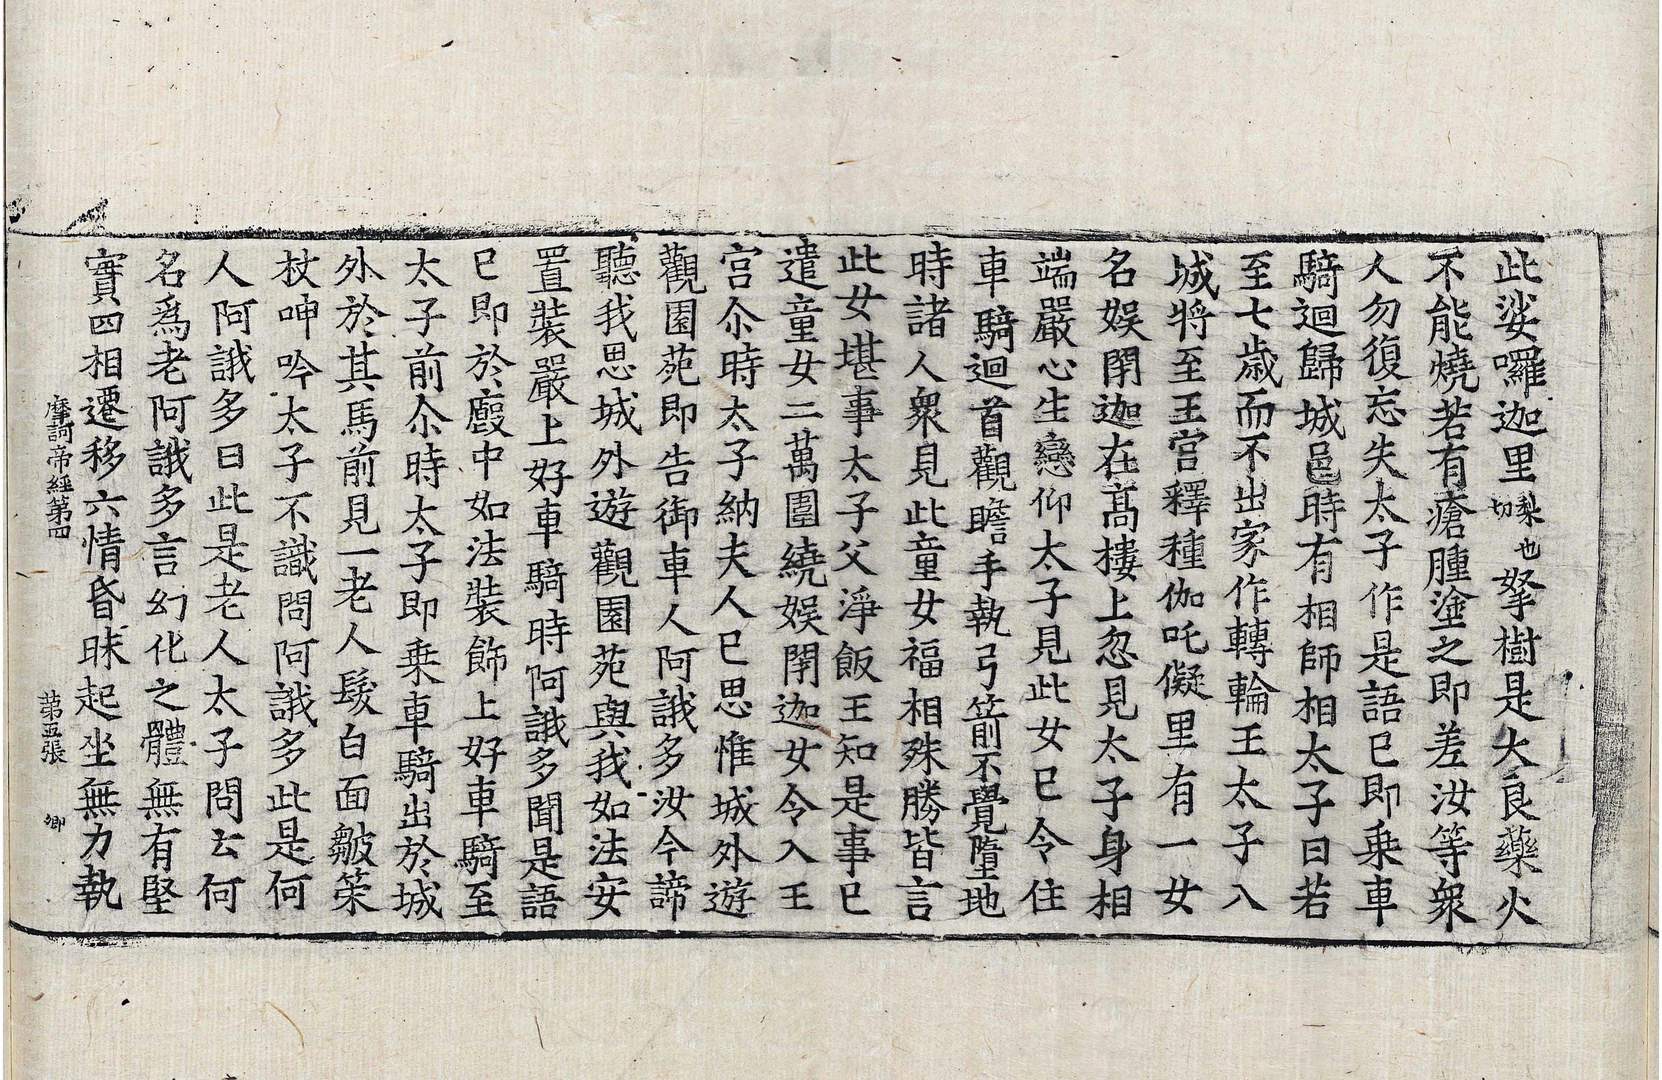 此娑囉迦里梨也切拏樹是大良藥火
不能燒若有瘡腫塗之即差汝等衆
人勿復忘失太子作是語已即乗車
騎迴歸城邑時有相師相太子曰若
至七歳而不出家作轉輪王太子入
城將至王宮釋種伽吒儗里有一女
名娱閉迦在髙樓上忽見太子身相
端嚴心生戀仰太子見此女已令住
車騎迴首觀瞻手執弓箭不覺墮地
時諸人衆見此童女福相殊勝皆言
此女堪事太子父淨飯王知是事已
遣童女二萬圍繞娱閉迦女令入王
宮尒時太子納夫人已思惟城外遊
觀園苑即告御車人阿誐多汝今諦
聽我思城外遊觀園苑與我如法安
置裝嚴上好車騎時阿誐多聞是語
已即於廏中如法裝飾上好車騎至
太子前尒時太子即乗車騎出於城
外於其馬前見一老人髮白面皺策
杖呻吟太子不識問阿誐多此是何
人阿誐多曰此是老人太子問云何
名爲老阿誐多言幻化之體無有堅
實四相遷移六情昏昧起坐無力執
摩訶帝經第四 第五張 卿